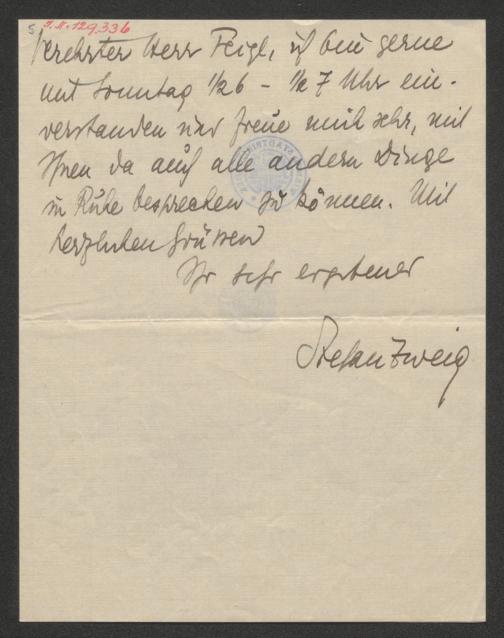 5. I.N. 129336
Verehrter Herr Feigl, ich bin gerne
mit Sonntag ½6 – ½7 Uhr ein-
verstanden und freue mich sehr, mit
Ihnen da auch alle andern Dinge
in Ruhe besprechen zu können. Mit
herzlichen Grüssen
Ihr sehr ergebener
Stefan Zweig